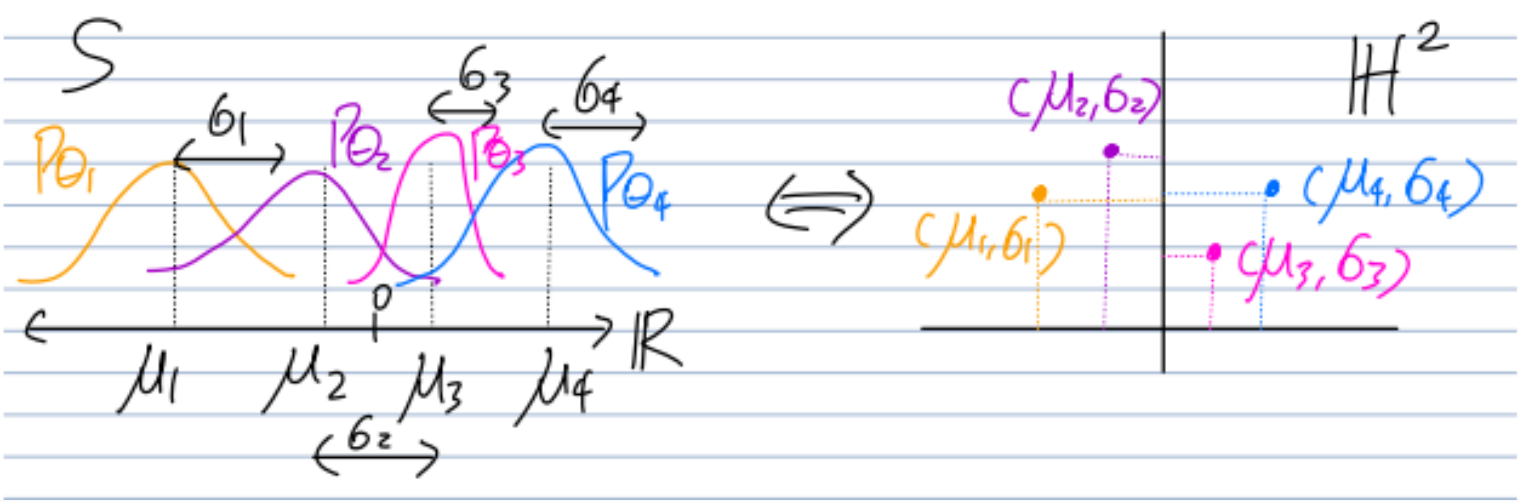 S
σ₁
σ₃
σ₄
Pθ₁
Pθ₂
Pθ₃
Pθ₄
0
ℝ
μ₁ μ₂ μ₃ μ₄
σ₂
⇔
ℍ²
(μ₂,σ₂)
(μ₁,σ₁)
(μ₄,σ₄)
(μ₃,σ₃)